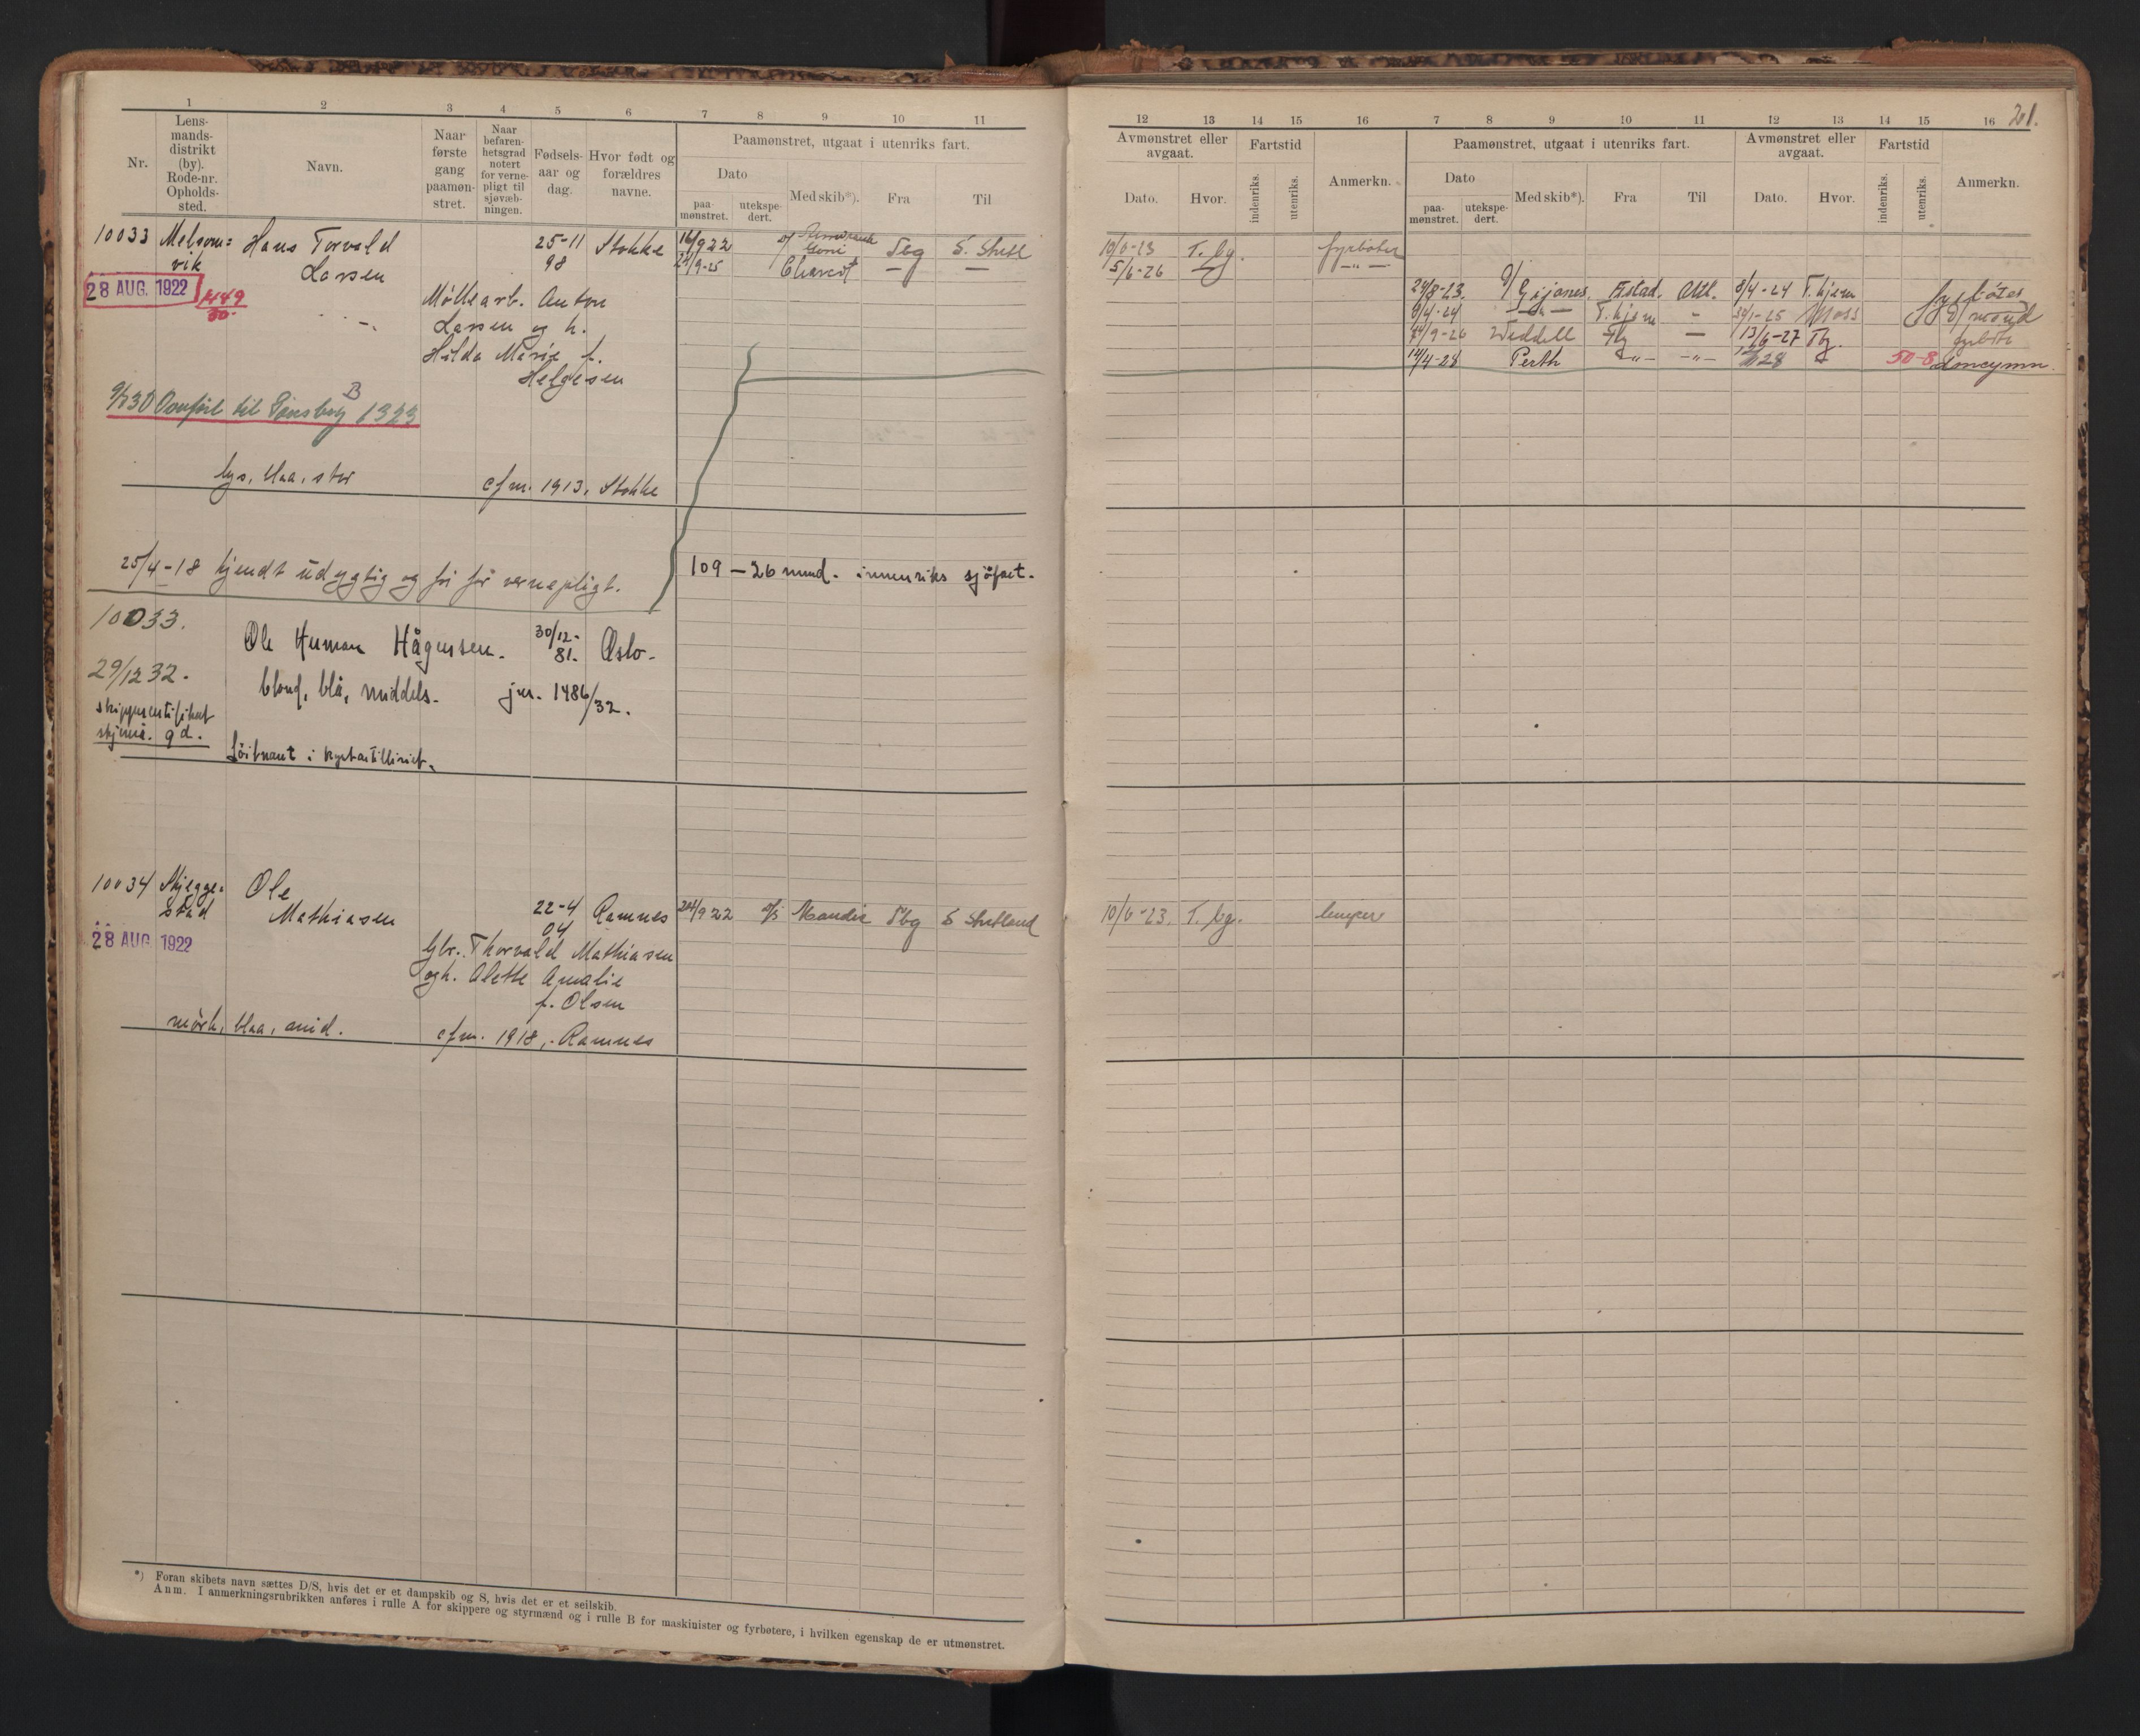 1 2 3 4 5 6 7 8 9 10 11
Nr.
Lens-
mands-
distrikt
(by).
Rode-nr.
Opholds-
sted.
Navn.
Naar
første
gang
paamøn-
stret.
Naar
befaren-
hetsgrad
notert
for verne-
pligt til
sjøvæb-
ningen.
Fødsels-
aar og
dag.
Hvor født og
forældres
navne.
Paamønstret, utgaat i utenriks fart.
Dato
paa-
mønstret.
utekspe-
dert.
Med skib*).
Fra
Til
10033 Melsom= Hans Torvald 25-11 Stokke 16/9 22 Tbg S. Shetl
vik Larsen 98 9-25
28 AUG. 1922
Møllearb. Anton
Larsen og h.
Hilda Marie f.
Helgesen
B
Overført til Tønsberg 1323
lys, blaa, stor cfm. 1913, Stokke
25/4-18 kjendt udygtig og fri for vernepligt. 109 - 26 mnd. innenriks sjøfart.
10033.
Ole Herman Hågensen. 30/12- Oslo.
81.
29/12 32.
blond, blå, middels. jnr. 1486/32.
skippersertifikat
skjema. 9d.
Løitnant i kystartilleriet.
10034 Skjegge= Ole
stad Mathiasen 22-4 Ramnes 24/9 22 Tbg S Shetland
04
28 AUG 1922
Gbr. Thorvald Mathiasen
og h. Alette Amalie
f. Olsen
mörk, blaa, mid. cfm. 1918, Ramnes
*) Foran skibets navn sættes D/S, hvis det er et dampskib og S, hvis det er et seilskib.
Anm. I anmerkningsrubrikken anføres i rulle A for skippere og styrmænd og i rulle B for maskinister og fyrbøtere, i hvilken egenskap de er utmønstret.
21.
12 13 14 15 16 7 8 9 10 11 12 13 14 15 16
Avmønstret eller
avgaat.
Dato.
Hvor.
Fartstid
indenriks.
utenriks.
Anmerkn.
Paamønstret, utgaat i utenriks fart.
Dato
paa-
mønstret.
utekspe-
dert.
Med skib*).
Fra
Til
Avmønstret eller
avgaat.
Dato.
Hvor.
Fartstid
indenriks.
utenriks.
Anmerkn.
10/6-23 T. bg. fyrbøter
5/6-26 -"-
24/8-23. Gijones. Fistad. 8/4-24 T. hjem
8/4-24 -"- T. hjem 25 Moss
9-26 Weddell Tbg - 13/6-27 Tbg.
14/4-28 Perth -"- -"- 28 50-8
10/6-23. T. bg. lemper